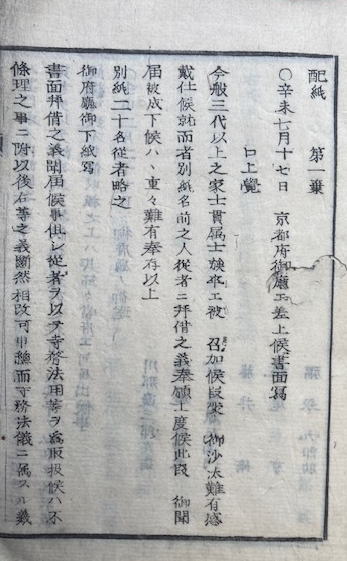 配紙　第一棄
〇辛未七月十七日　京都府御廳エ差上候書面寫
口上覺
今般三代以上之家士貫属士族卒エ被　召加候段蒙　御沙汰難有感
戴仕候就而者別紙名前之人従者ニ拜借之義奉願上度候此段　御聞
届被成下候ハヽ重々難有奉存以上
別紙二十名従者略之
御府廳御下紙寫
書面拜借之義聞届候事但シ従者ヲ以テ寺務法用等ヲ為取扱候ハ不
條理之事ニ附以後右等之義断然相改可申總而寺務法儀ニ属スル義